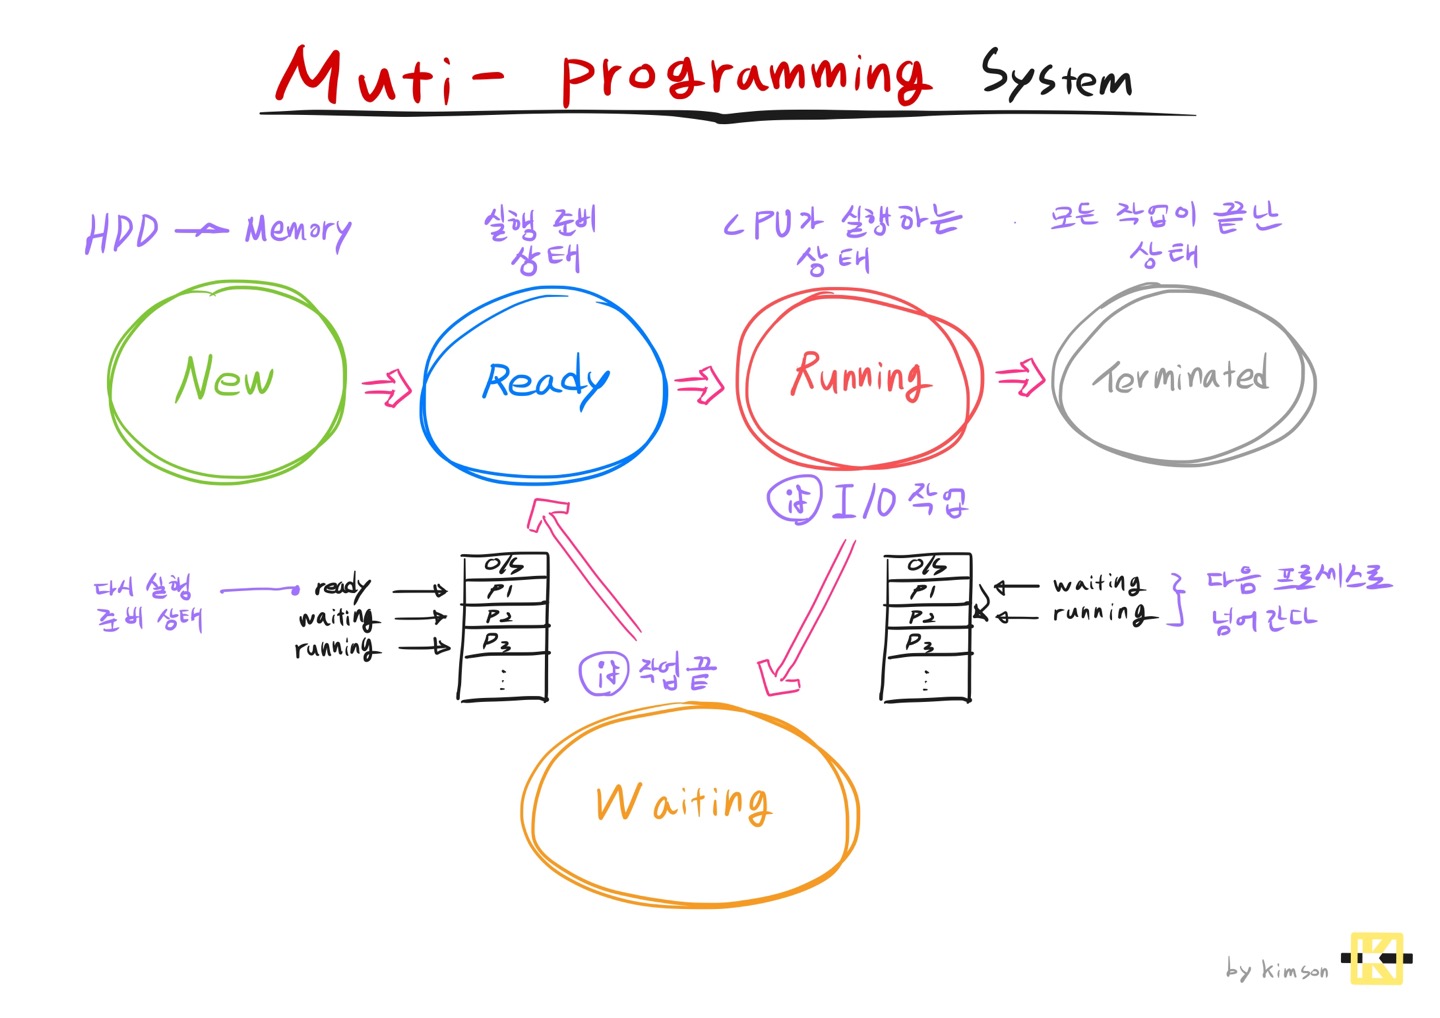 Muti- programming System
HDD → Memory
실행 준비
상태
CPU가 실행하는
상태
모든 작업이 끝난
상태
New
Ready
Running
Terminated
I/O 작업
다시 실행
준비 상태
ready
waiting
running
O/S
P1
P2
P3
⋮
작업 끝
O/S
P1
P2
P3
⋮
waiting
running
다음 프로세스로
넘어간다
Waiting
by kimson
K